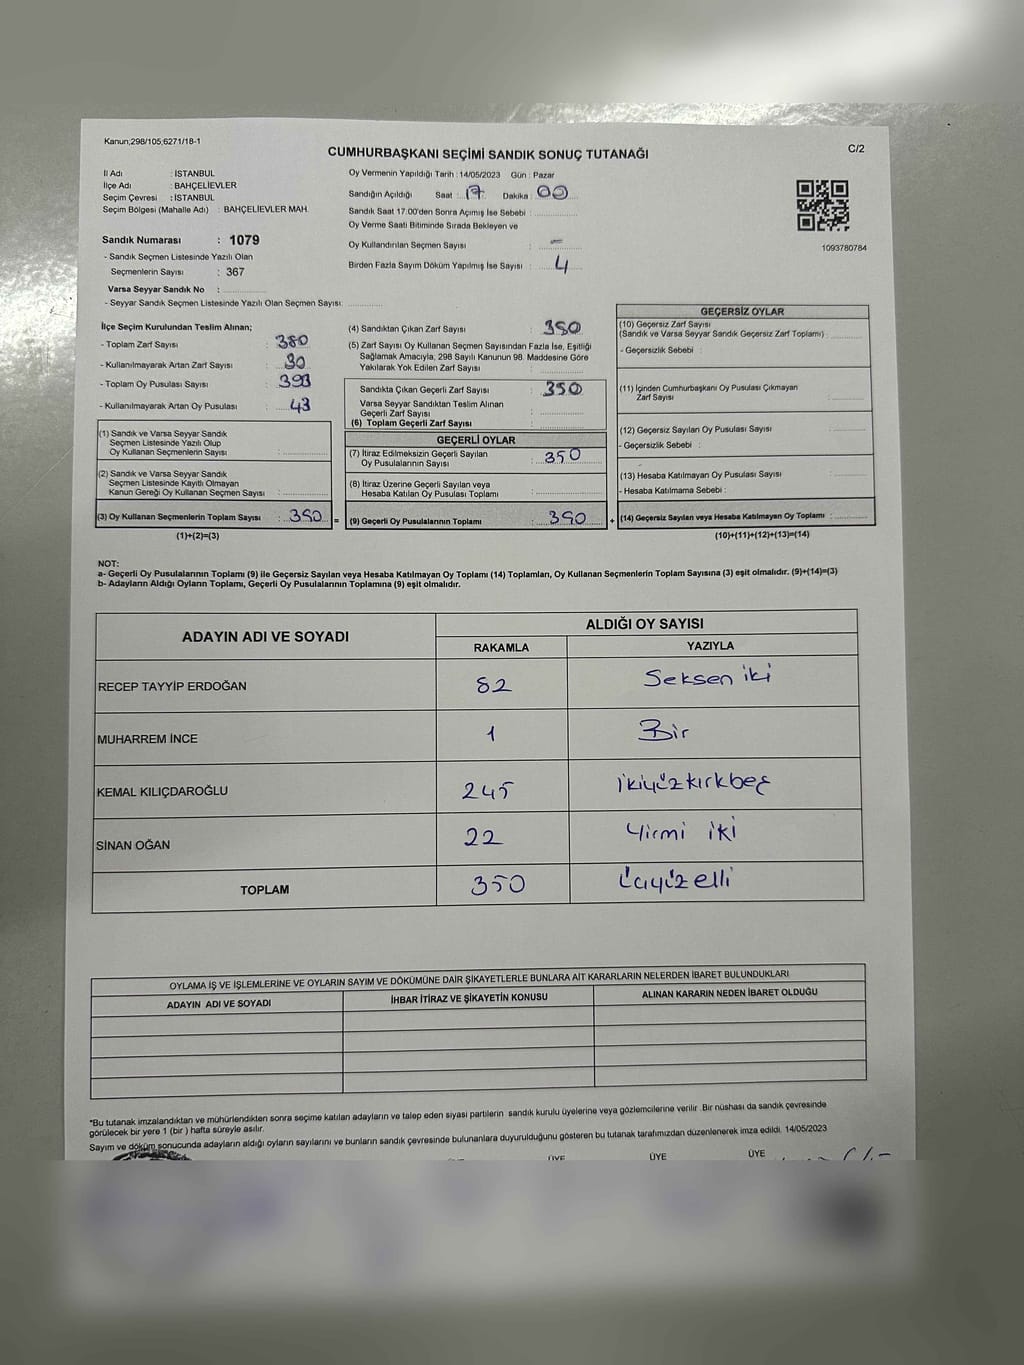 Kanun;298/105,6271/18-1
C/2
CUMHURBAŞKANI SEÇİMİ SANDIK SONUÇ TUTANAĞI
İl Adı : İSTANBUL
İlçe Adı : BAHÇELİEVLER
Seçim Çevresi : İSTANBUL
Seçim Bölgesi (Mahalle Adı) : BAHÇELİEVLER MAH.
Oy Vermenin Yapıldığı Tarih : 14/05/2023 Gün : Pazar
Sandığın Açıldığı Saat : 17 Dakika : 00
Sandık Saat 17:00'den Sonra Açılmış İse Sebebi :
Oy Verme Saati Bitiminde Sırada Bekleyen ve
Oy Kullandırılan Seçmen Sayısı : -
Birden Fazla Sayım Döküm Yapılmış İse Sayısı : 4
1093780784
Sandık Numarası : 1079
- Sandık Seçmen Listesinde Yazılı Olan
Seçmenlerin Sayısı : 367
Varsa Seyyar Sandık No :
- Seyyar Sandık Seçmen Listesinde Yazılı Olan Seçmen Sayısı:
İlçe Seçim Kurulundan Teslim Alınan;
- Toplam Zarf Sayısı : 380
- Kullanılmayarak Artan Zarf Sayısı : 30
- Toplam Oy Pusulası Sayısı : 393
- Kullanılmayarak Artan Oy Pusulası : 43
(1) Sandık ve Varsa Seyyar Sandık
Seçmen Listesinde Yazılı Olup
Oy Kullanan Seçmenlerin Sayısı :
(2) Sandık ve Varsa Seyyar Sandık
Seçmen Listesinde Kayıtlı Olmayan
Kanun Gereği Oy Kullanan Seçmen Sayısı :
(3) Oy Kullanan Seçmenlerin Toplam Sayısı : 350 =
(1)+(2)=(3)
(4) Sandıktan Çıkan Zarf Sayısı : 350
(5) Zarf Sayısı Oy Kullanan Seçmen Sayısından Fazla İse, Eşitliği
Sağlamak Amacıyla, 298 Sayılı Kanunun 98. Maddesine Göre
Yakılarak Yok Edilen Zarf Sayısı :
Sandıkta Çıkan Geçerli Zarf Sayısı : 350
Varsa Seyyar Sandıktan Teslim Alınan
Geçerli Zarf Sayısı :
(6) Toplam Geçerli Zarf Sayısı :
GEÇERLİ OYLAR
(7) İtiraz Edilmeksizin Geçerli Sayılan
Oy Pusulalarının Sayısı : 350
(8) İtiraz Üzerine Geçerli Sayılan veya
Hesaba Katılan Oy Pusulası Toplamı :
(9) Geçerli Oy Pusulalarının Toplamı : 350 +
GEÇERSİZ OYLAR
(10) Geçersiz Zarf Sayısı
(Sandık ve Varsa Seyyar Sandık Geçersiz Zarf Toplamı) :
- Geçersizlik Sebebi :
(11) İçinden Cumhurbaşkanı Oy Pusulası Çıkmayan
Zarf Sayısı :
(12) Geçersiz Sayılan Oy Pusulası Sayısı :
- Geçersizlik Sebebi :
(13) Hesaba Katılmayan Oy Pusulası Sayısı :
- Hesaba Katılmama Sebebi :
(14) Geçersiz Sayılan veya Hesaba Katılmayan Oy Toplamı :
(10)+(11)+(12)+(13)=(14)
NOT:
a- Geçerli Oy Pusulalarının Toplamı (9) ile Geçersiz Sayılan veya Hesaba Katılmayan Oy Toplamı (14) Toplamları, Oy Kullanan Seçmenlerin Toplam Sayısına (3) eşit olmalıdır. (9)+(14)=(3)
b- Adayların Aldığı Oyların Toplamı, Geçerli Oy Pusulalarının Toplamına (9) eşit olmalıdır.
ADAYIN ADI VE SOYADI
ALDIĞI OY SAYISI
RAKAMLA YAZIYLA
RECEP TAYYİP ERDOĞAN 82 Seksen iki
MUHARREM İNCE 1 Bir
KEMAL KILIÇDAROĞLU 245 ikiyüzkırkbeş
SİNAN OĞAN 22 Yirmi iki
TOPLAM 350 Üçyüz elli
OYLAMA İŞ VE İŞLEMLERİNE VE OYLARIN SAYIM VE DÖKÜMÜNE DAİR ŞİKAYETLERLE BUNLARA AİT KARARLARIN NELERDEN İBARET BULUNDUKLARI
ADAYIN ADI VE SOYADI İHBAR İTİRAZ VE ŞİKAYETİN KONUSU ALINAN KARARIN NEDEN İBARET OLDUĞU
*Bu tutanak imzalandıktan ve mühürlendikten sonra seçime katılan adayların ve talep eden siyasi partilerin sandık kurulu üyelerine veya gözlemcilerine verilir. Bir nüshası da sandık çevresinde
görülecek bir yere 1 (bir ) hafta süreyle asılır.
Sayım ve döküm sonucunda adayların aldığı oyların sayılarını ve bunların sandık çevresinde bulunanlara duyurulduğunu gösteren bu tutanak tarafımızdan düzenlenerek imza edildi. 14/05/2023
ÜYE ÜYE ÜYE